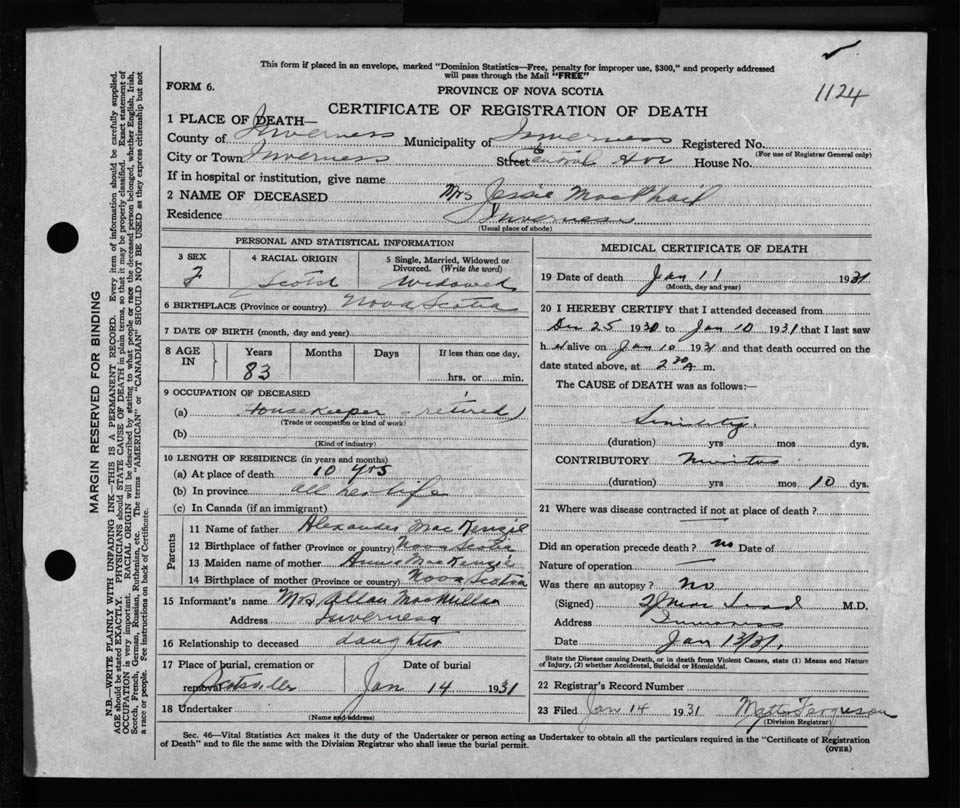 This form if placed in an envelope, marked "Dominion Statistics—Free, penalty for improper use, $300," and properly addressed
will pass through the Mail "FREE"
FORM 6.
PROVINCE OF NOVA SCOTIA
1124
CERTIFICATE OF REGISTRATION OF DEATH
1 PLACE OF DEATH—
County of Inverness Municipality of Inverness Registered No.
(For use of Registrar General only)
City or Town Inverness Street Central Ave House No.
If in hospital or institution, give name
2 NAME OF DECEASED Mrs Jessie MacPhail
Residence Inverness
(Usual place of abode)
PERSONAL AND STATISTICAL INFORMATION
3 SEX
F
4 RACIAL ORIGIN
Scotch
5 Single, Married, Widowed or
Divorced. (Write the word)
Widowed
6 BIRTHPLACE (Province or country) Nova Scotia
7 DATE OF BIRTH (month, day and year)
8 AGE IN
Years Months Days If less than one day.
83 hrs. or min.
9 OCCUPATION OF DECEASED
(a) Housekeeper - retired
(Trade or occupation or kind of work)
(b)
(Kind of industry)
10 LENGTH OF RESIDENCE (in years and months)
(a) At place of death 10 yrs
(b) In province all her life
(c) In Canada (if an immigrant)
Parents
11 Name of father Alexander MacKenzie
12 Birthplace of father (Province or country) Nova Scotia
13 Maiden name of mother Annie MacKenzie
14 Birthplace of mother (Province or country) Nova Scotia
15 Informant's name Mrs Allan MacMillan
Address Inverness
16 Relationship to deceased daughter
17 Place of burial, cremation or Date of burial
removal Scotsville Jan 14 1931
18 Undertaker
(Name and address)
MEDICAL CERTIFICATE OF DEATH
19 Date of death Jan 11 1931
(Month, day and year)
20 I HEREBY CERTIFY that I attended deceased from
Dec 25 1930 to Jan 10 1931 that I last saw
h er alive on Jan 10 1931 and that death occurred on the
date stated above, at 2 30 A m.
The CAUSE of DEATH was as follows:—
Senility
(duration) yrs mos dys.
CONTRIBUTORY
(duration) yrs mos 10 dys.
21 Where was disease contracted if not at place of death?
Did an operation precede death? no Date of
Nature of operation
Was there an autopsy? no
(Signed) M.D.
Address Inverness
Date Jan 13/31.
State the Disease causing Death, or in death from Violent Causes, state (1) Means and Nature
of Injury, (2) whether Accidental, Suicidal or Homicidal.
22 Registrar's Record Number
23 Filed Jan 14 1931 Matt Ferguson
(Division Registrar)
Sec. 46—Vital Statistics Act makes it the duty of the Undertaker or person acting as Undertaker to obtain all the particulars required in the "Certificate of Registration
of Death" and to file the same with the Division Registrar who shall issue the burial permit.
(OVER)
MARGIN RESERVED FOR BINDING
N.B.—WRITE PLAINLY WITH UNFADING INK—THIS IS A PERMANENT RECORD. Every item of information should be carefully supplied.
AGE should be stated EXACTLY. PHYSICIANS should STATE CAUSE OF DEATH in plain terms, so that it may be properly classified. Exact statement of
OCCUPATION is very important. RACIAL ORIGIN will be described by stating to what people or race the deceased person belonged, whether English, Irish,
Scotch, French, German, Russian, Ruthenian, etc. The terms "AMERICAN" or "CANADIAN" SHOULD NOT BE USED as they express citizenship but not
a race or people. Fee instructions on back of Certificate.